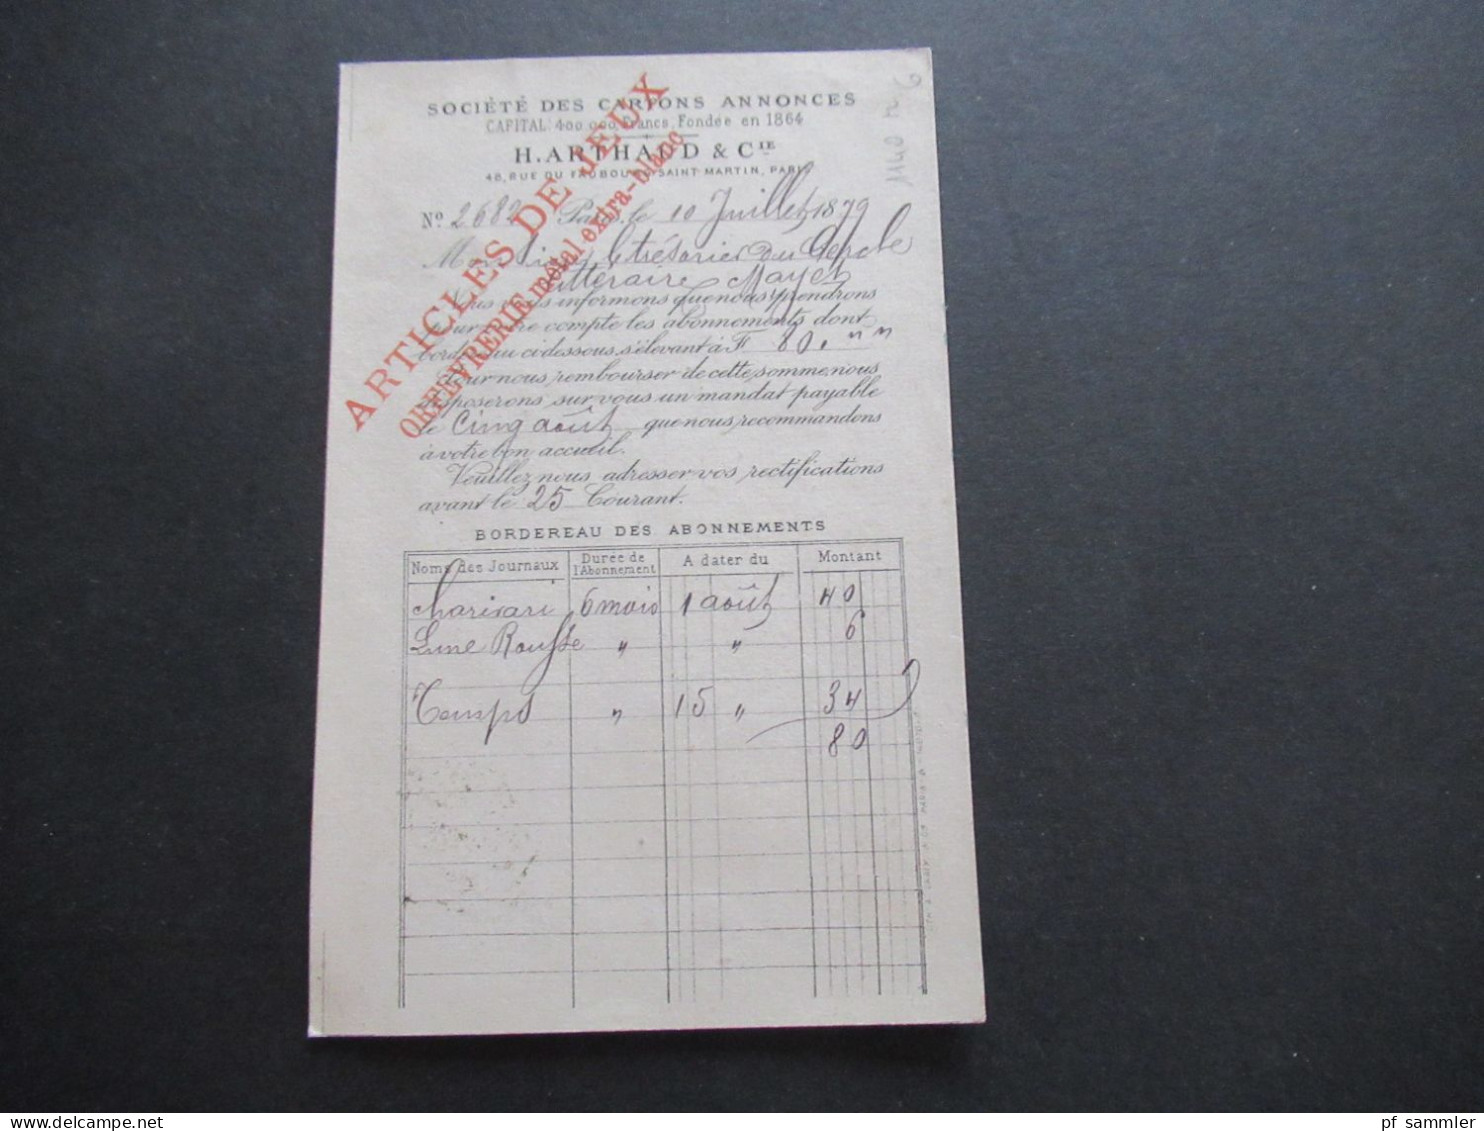 SOCIÉTÉ DES CARTONS ANNONCES
CAPITAL: 400 000 Francs, Fondée en 1864
H. ARTHAUD & CIE
48, RUE DU FAUBOURG SAINT-MARTIN, PARIS
ARTICLES DE JEUX
ORFÈVRERIE métal extra-blanc
No 2682 Paris, le 10 Juillet 1879
Monsieur le trésorier du Cercle
littéraire Mayet
Nous vous informons que nous prendrons
pour votre compte les abonnements dont
bordereau ci dessous, s'élevant à F 80. " "
Pour nous rembourser de cette somme, nous
disposerons sur vous un mandat payable
le Cinq août que nous recommandons
à votre bon accueil.
Veuillez nous adresser vos rectifications
avant le 25 Courant.
BORDEREAU DES ABONNEMENTS
Noms des Journaux Durée de l'Abonnement A dater du Montant
Charivari 6 mois 1 août 40
Lune Rousse " " 6
Temps " 15 " 34
80
1140 n 6
pf sammler